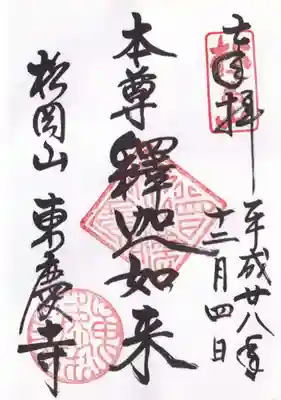 奉拝
平成廿八年
十二月四日
本尊 釋迦如来
松岡山 東慶寺